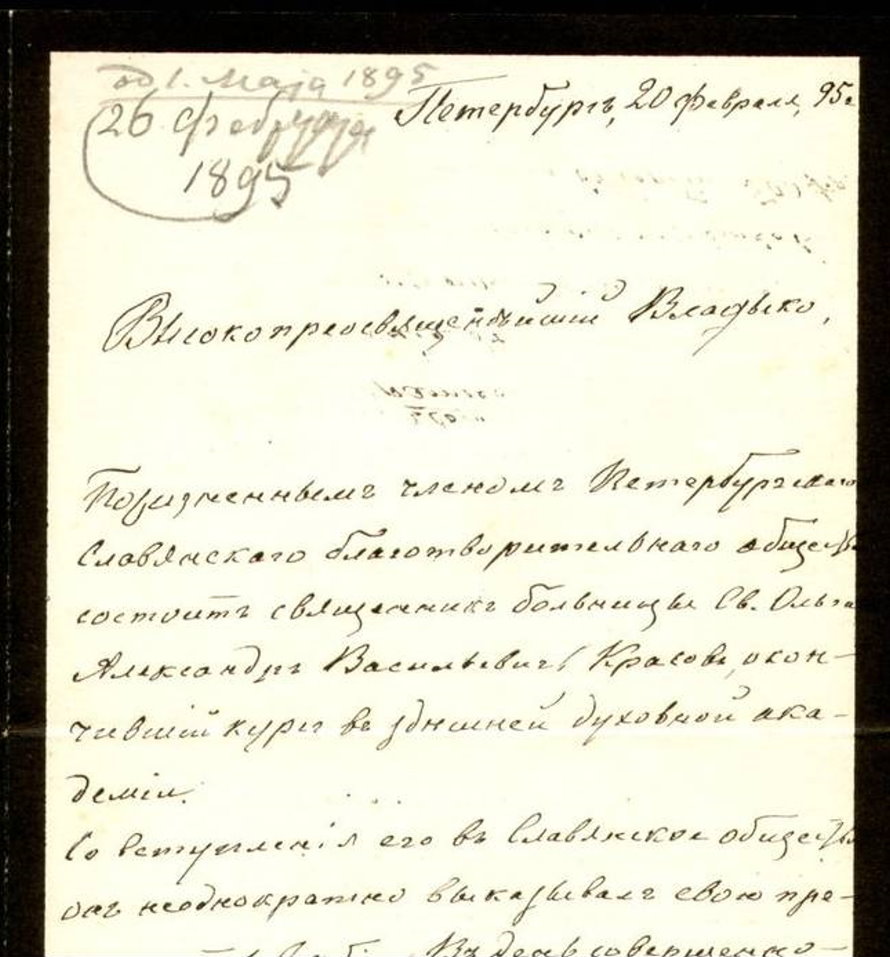 од 1. Маја 1895
26 фебруара
1895
Петербургъ, 20 февраля, 95г
Высокопреосвященнѣйшій Владыко,
Пожизненнымъ членомъ Петербургскаго
Славянскаго благотворительнаго общества
состоитъ священникъ больницы Св. Ольги
Александръ Васильевичъ Красовъ, окон-
чившій курсъ въ здѣшней духовной ака-
деміи.
Со вступленія его въ Славянское общество
онъ неоднократно высказывалъ свою пре-
Въ день совершенно-